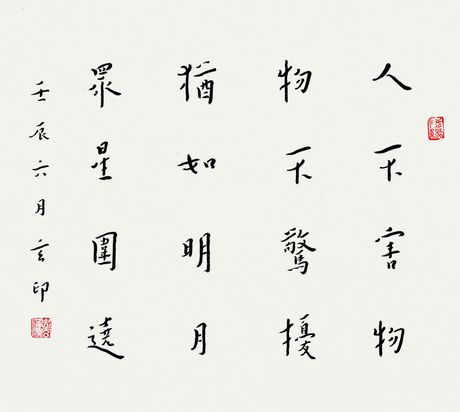 人不害物
物不驚擾
猶如明月
眾星圍遶
壬辰六月玄印